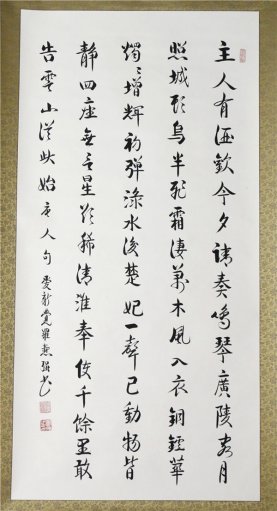 主人有酒歡今夕請奏鳴琴廣陵客月
照城頭烏半飛霜淒萬木風入衣銅鑪華
燭〻增輝初彈淥水後楚妃一聲已動物皆
靜四座無言星欲稀清淮奉使千餘里敢
告雲山從此始 唐人句 愛新覺羅 書